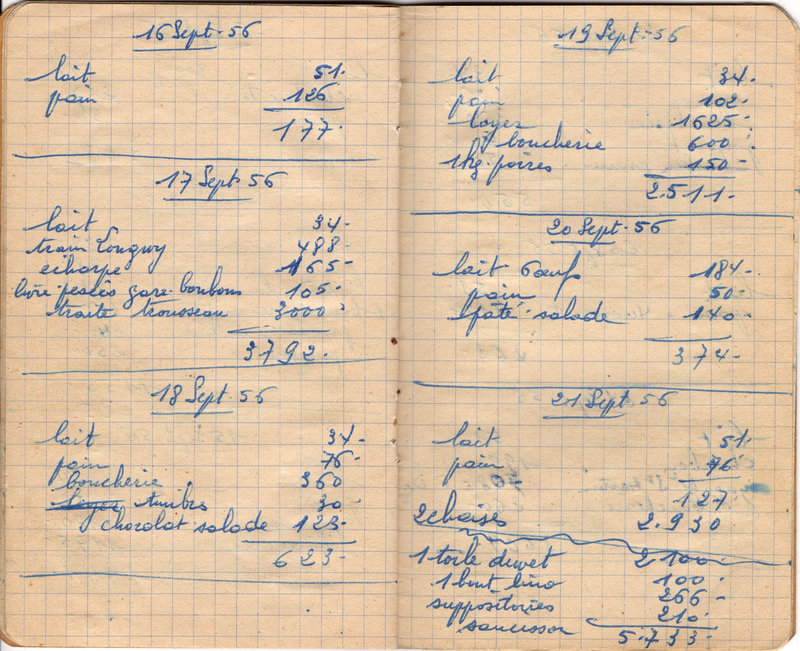 16 Sept. 56
lait 51.
pain 126
177.
17 Sept. 56
lait 34.
train Longwy 488.
echarpe 165.
livre pesées gare bonbons 105.
traite trousseau 3000.
3792.
18 Sept 56
lait 34.
pain 76.
boucherie 360
timbres 30.
chocolat salade 123.
623.
19 Sept. 56
lait 34.
pain 102.
loyer 1625.
boucherie 600
1kg. poires 150.
2.511.
20 Sept. 56
lait 6 œufs 184.
pain 50.
pâté salade 140.
374.
21 Sept 56
lait 51.
pain 76
127
2 chaises 2.930
1 toile duvet 2100.
1 bout lino 100.
suppositoires 266
saucisson 210.
5.733.